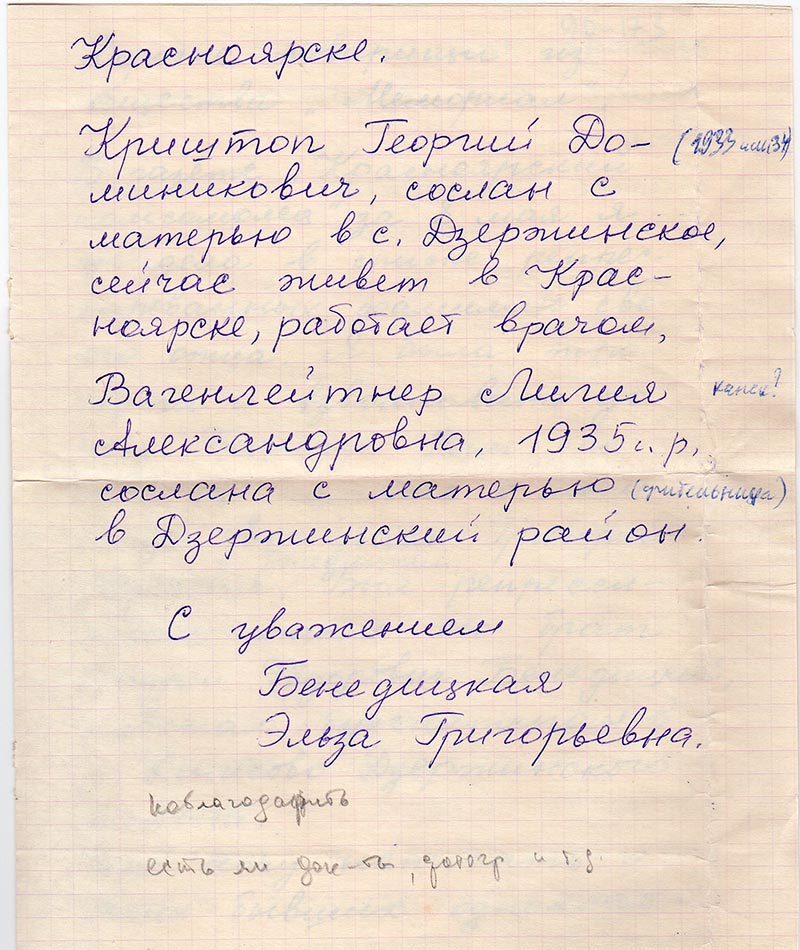 Красноярске.
Криштоп Георгий До- (1933 или 34)
миникович, сослан с
матерью в с. Дзержинское,
сейчас живет в Крас-
ноярске, работает врачом,
Вагенлейтнер Лилия канск?
Александровна, 1935 г. р.
сослана с матерью (учительница)
в Дзержинский район.
С уважением
Бенедицкая
Эльза Григорьевна.
поблагодарить
есть ли док-ты, фотогр и т.д.